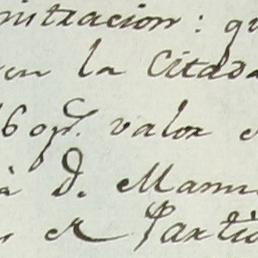 nitracion: qu
en la Citada
6 op.s valor
à D. Manu
el Partid